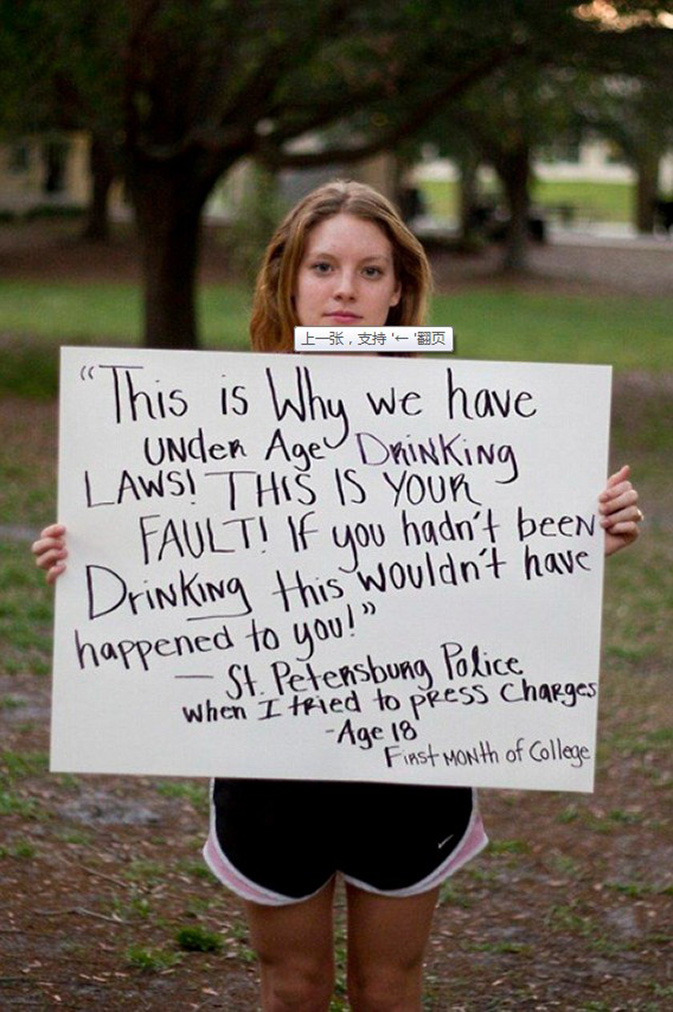 上一张，支持 '← '翻页
“This is Why we have
UNder Age DRiNKiNg
LAWS! THIS IS YOUR
FAULT! If you hadn't been
DriNKiNg this wouldn't have
happened to you!”
— St. Petersburg Police
when I tried to press Charges
-Age 18
First MONth of College